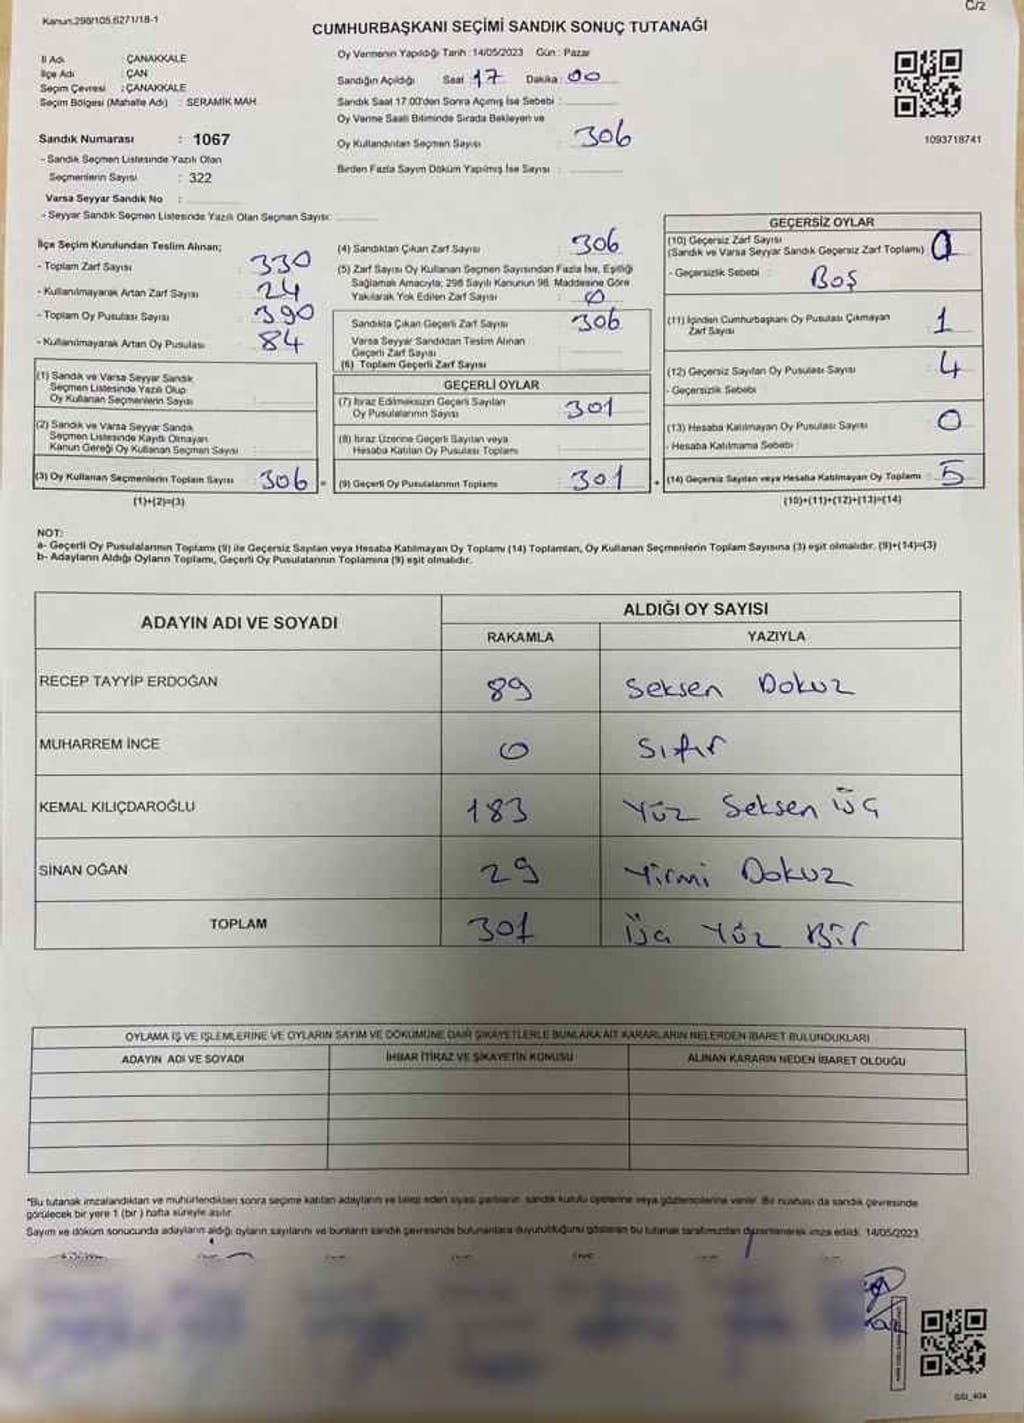 Kanun:298/105.6271/18-1
C/2
CUMHURBAŞKANI SEÇİMİ SANDIK SONUÇ TUTANAĞI
İl Adı : ÇANAKKALE
İlçe Adı : ÇAN
Seçim Çevresi : ÇANAKKALE
Seçim Bölgesi (Mahalle Adı) : SERAMİK MAH
Sandık Numarası : 1067
- Sandık Seçmen Listesinde Yazılı Olan
Seçmenlerin Sayısı : 322
Varsa Seyyar Sandık No :
- Seyyar Sandık Seçmen Listesinde Yazılı Olan Seçmen Sayısı:
Oy Vermenin Yapıldığı Tarih : 14/05/2023 Gün : Pazar
Sandığın Açıldığı Saat : 17 Dakika : 00
Sandık Saat 17.00'den Sonra Açımış İse Sebebi :
Oy Verme Saati Bitiminde Sırada Bekleyen ve
Oy Kullandırılan Seçmen Sayısı : 306
Birden Fazla Sayım Döküm Yapılmış İse Sayısı :
1093718741
İlçe Seçim Kurulundan Teslim Alınan;
- Toplam Zarf Sayısı : 330
- Kullanılmayarak Artan Zarf Sayısı : 24
- Toplam Oy Pusulası Sayısı : 390
- Kullanılmayarak Artan Oy Pusulası : 84
(1) Sandık ve Varsa Seyyar Sandık
Seçmen Listesinde Yazılı Olup
Oy Kullanan Seçmenlerin Sayısı :
(2) Sandık ve Varsa Seyyar Sandık
Seçmen Listesinde Kayıtlı Olmayan
Kanun Gereği Oy Kullanan Seçmen Sayısı :
(3) Oy Kullanan Seçmenlerin Toplam Sayısı : 306 =
(1)+(2)=(3)
(4) Sandıktan Çıkan Zarf Sayısı : 306
(5) Zarf Sayısı Oy Kullanan Seçmen Sayısından Fazla İse, Eşitliği
Sağlamak Amacıyla; 298 Sayılı Kanunun 98. Maddesine Göre
Yakılarak Yok Edilen Zarf Sayısı : 0
Sandıkta Çıkan Geçerli Zarf Sayısı : 306
Varsa Seyyar Sandıktan Teslim Alınan
Geçerli Zarf Sayısı :
(6) Toplam Geçerli Zarf Sayısı :
GEÇERLİ OYLAR
(7) İtiraz Edilmeksizin Geçerli Sayılan
Oy Pusulalarının Sayısı : 301
(8) İtiraz Üzerine Geçerli Sayılan veya
Hesaba Katılan Oy Pusulası Toplamı :
(9) Geçerli Oy Pusulalarının Toplamı : 301 +
GEÇERSİZ OYLAR
(10) Geçersiz Zarf Sayısı
(Sandık ve Varsa Seyyar Sandık Geçersiz Zarf Toplamı) : 0
- Geçersizlik Sebebi : BOŞ
(11) İçinden Cumhurbaşkanı Oy Pusulası Çıkmayan
Zarf Sayısı : 1
(12) Geçersiz Sayılan Oy Pusulası Sayısı : 4
- Geçersizlik Sebebi :
(13) Hesaba Katılmayan Oy Pusulası Sayısı : 0
- Hesaba Katılmama Sebebi :
(14) Geçersiz Sayılan veya Hesaba Katılmayan Oy Toplamı : 5
(10)+(11)+(12)+(13)=(14)
NOT:
a- Geçerli Oy Pusulalarının Toplamı (9) ile Geçersiz Sayılan veya Hesaba Katılmayan Oy Toplamı (14) Toplamları, Oy Kullanan Seçmenlerin Toplam Sayısına (3) eşit olmalıdır. (9)+(14)=(3)
b- Adayların Aldığı Oyların Toplamı, Geçerli Oy Pusulalarının Toplamına (9) eşit olmalıdır.
ADAYIN ADI VE SOYADI
ALDIĞI OY SAYISI
RAKAMLA YAZIYLA
RECEP TAYYİP ERDOĞAN 89 Seksen Dokuz
MUHARREM İNCE 0 Sıfır
KEMAL KILIÇDAROĞLU 183 Yüz Seksen Üç
SİNAN OĞAN 29 Yirmi Dokuz
TOPLAM 301 Üç Yüz Bir
OYLAMA İŞ VE İŞLEMLERİNE VE OYLARIN SAYIM VE DÖKÜMÜNE DAİR ŞİKAYETLERLE BUNLARA AİT KARARLARIN NELERDEN İBARET BULUNDUKLARI
ADAYIN ADI VE SOYADI İHBAR İTİRAZ VE ŞİKAYETİN KONUSU ALINAN KARARIN NEDEN İBARET OLDUĞU
*Bu tutanak imzalandıktan ve mühürlendikten sonra seçime katılan adayların ve talep eden siyasi partilerin sandık kurulu üyelerine veya gözlemcilerine verilir. Bir nüshası da sandık çevresinde
görülecek bir yere 1 (bir) hafta süreyle asılır.
Sayım ve döküm sonucunda adayların aldığı oyların sayılarını ve bunların sandık çevresinde bulunanlara duyurulduğunu gösteren bu tutanak tarafımızdan düzenlenerek imza edildi. 14/05/2023